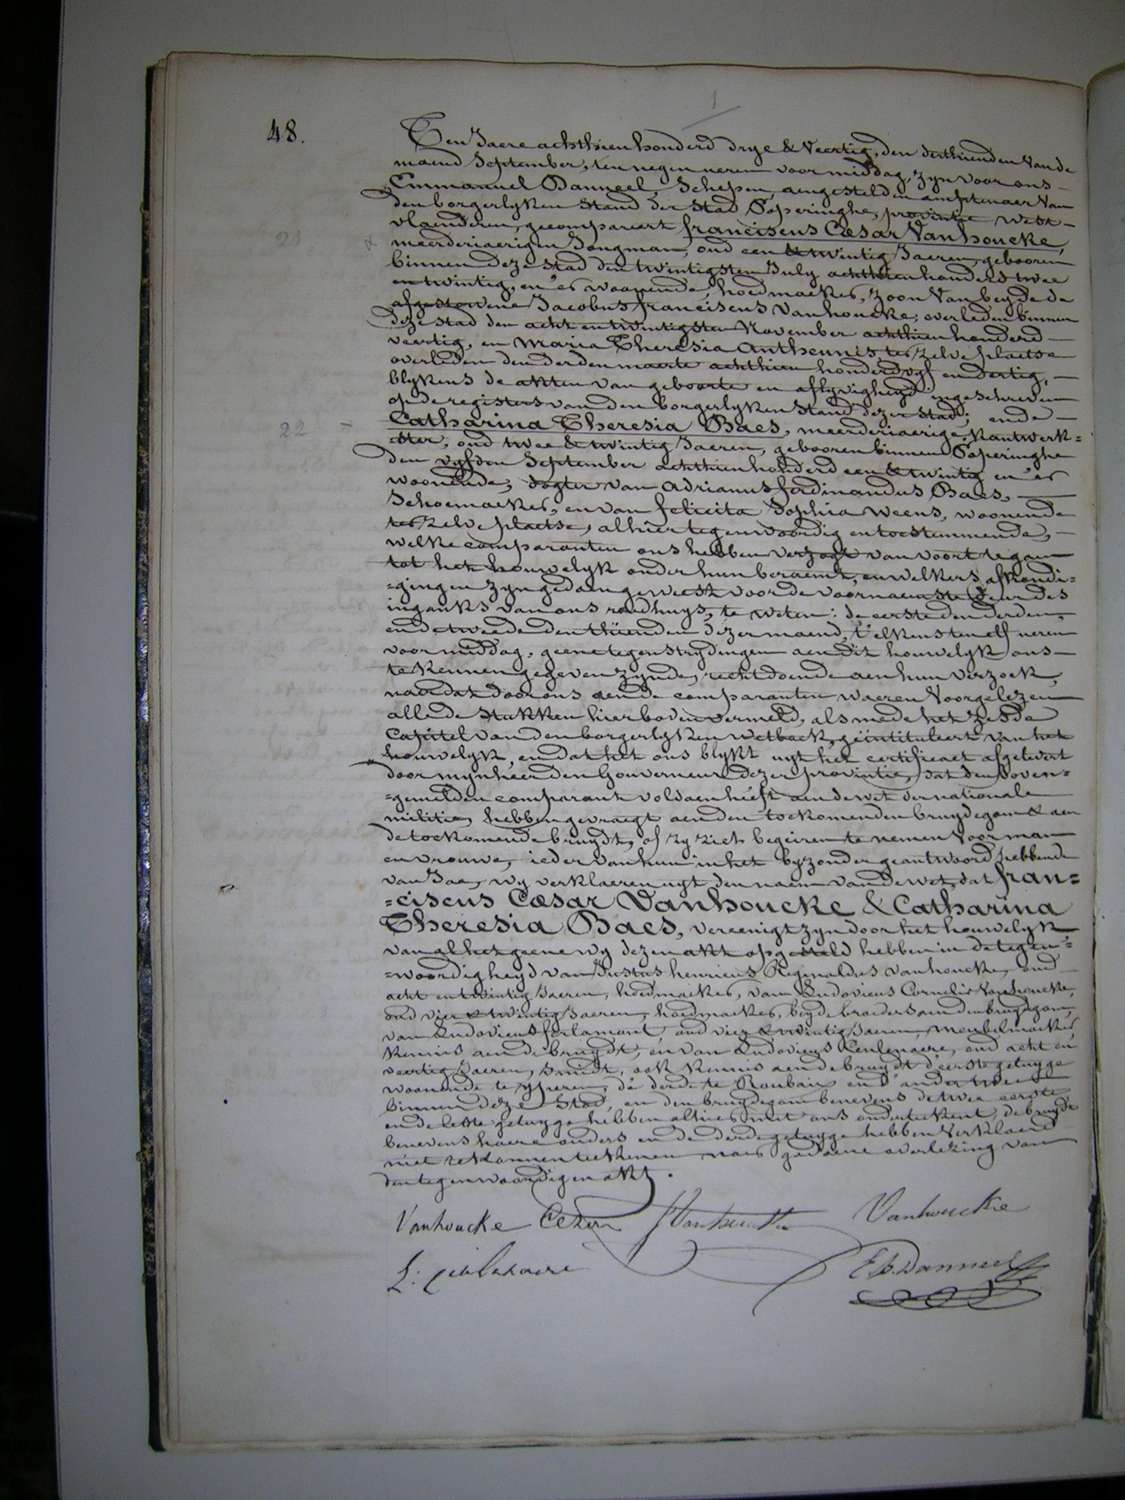 48.
Ten Jaere achthien honderd drye & veertig, den derthienden van de
maend September, ten negen ueren voormiddag, zyn voor ons
Emmanuel Danneel, Schepen, aengestelden amptenaer van
den borgerlyken stand der stad Poperinghe, provintie west-
vlaenderen, gecompareert franciscus Cæsar Vanhoucke,
21
meerderjaerigen Jongman, oud een & twintig Jaeren, gebooren
binnen deze stad den twintigsten July achttien honderd twee
en twintig, en er woonende, hoedmaeker, zoon van beyde de
afgestorvene Jacobus franciscus Vanhoucke, overleden binnen
deze stad den acht en twintigsten November achthien honderd
veertig, en Maria Theresia Antheunis ter zelve plaetse
overleden den derden maerte achthien honderd vyf en dertig,
blykens de akten van geboorte en aflyvigheyd ingeschreven
op de registers van den borgerlyken stand dezer stad; ende
22
Catharina Theresia Baes, meerderjaerige, kantwerk-
-ster, oud twee & twintig Jaeren, gebooren binnen Poperinghe
den vyfden September achthien honderd een & twintig en er
woonende, dogter van Adrianus ferdinandus Baes,
Schoemaeker, en van felicita Sophia Weens, woonende
ter zelve plaetse, alhier tegenwoordig en toestemmende,
welke comparanten ons hebben verzogt van voort te gaen
tot het houwelyk onder hun beraemt, en welkers afkondi-
-gingen zyn gedaen geweest voor de voornaemste deur des
inganks van ons raedhuys, te weten: de eerste den derden,
en de tweede den thienden dezer maend, t'elkens ten elf ueren
voor middag, geene tegenstrydingen aen dit houwelyk ons
te kennen gegeven zynde, recht doende aen hun verzoek,
naer dat door ons aen de comparanten waeren voorgelezen
alle de stukken hier boven vermeld, als mede het zesde
Capitel van den borgerlyken wetboek, geintituleert van het
houwelyk, en dat het ons blykt uyt het certificaet afgelevert
door mynheer den Gouverneur dezer provintie, dat den boven-
-gemelden comparant voldaen heeft aen de wet der nationale
militie, hebben gevraegt aen den toekomenden bruydegom & aen
de toekomende bruydt, of zy zich begeiren te nemen voor man
en vrouwe, ieder van hun in het byzonder geantwoord hebbende
van Jae, wy verklaeren uyt den naem van de wet, dat fran-
-ciscus Cæsar Vanhoucke & Catharina
Theresia Baes, vereenigt zyn door het houwelyk
van al het geene wy dezen akt opgesteld hebben in de tegen-
-woordigheyd van Justus henricus Reginaldus Vanhoucke, oud
acht en twintig Jaeren, hoedmaeker, van Ludovicus Cornelis Vanhoucke,
oud vier & twintig Jaeren, hoedmaeker, beyde broeders aen den bruydegom,
van Ludovicus ferlamont, oud vier & twintig Jaeren, meubelmaeker,
kennis aen de bruydt, en van Ludovicus Ceulenaere, oud acht en
veertig Jaeren, smidt, ook kennis aen de bruydt d'eerste getuyge
woonende te yperen, de derde te Roubaix en d'ander twee
binnen deze stad, en den bruydegom benevens de twee eerste
en de leste getuyge hebben alhier met ons onderteekent, de bruydt
benevens haere ouders en de derde getuyge hebben verklaert
niet te konnen teekenen naer gedaene overlezing van
den tegenwoordigen akt.
Vanhoucke Cezar J Vanhoucke Vanhouckie
E B Danneel